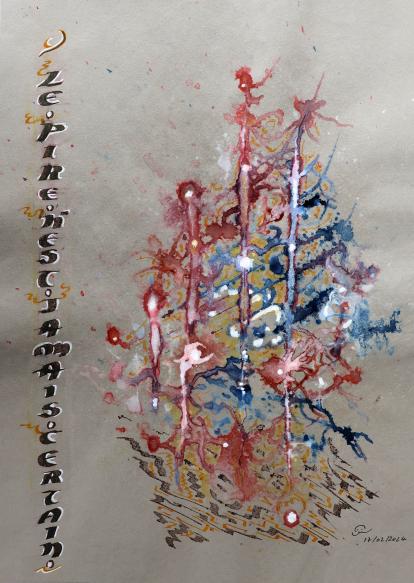 LE·PIRE·N'EST·JAMAIS·CERTAIN·
17/02/2024